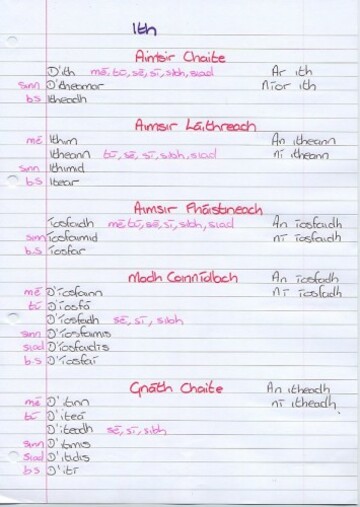 Ith
Aimsir Chaite
D'ith mé, tú, sé, sí, sibh, siad Ar ith
sinn D'itheamar Níor ith
b.s Itheadh
Aimsir Láithreach
mé Ithim An itheann
Itheann tú, sé, sí, sibh, siad ní itheann
sinn Ithimid
b.s Itear
Aimsir Fháistineach
Íosfaidh mé, tú, sé, sí, sibh, siad An íosfaidh
sinn Íosfaimid ní íosfaidh
b.s Íosfar
Modh Coinníollach An íosfadh
mé D'íosfainn ní íosfadh
tú D'íosfá
D'íosfadh sé, sí, sibh
sinn D'íosfaimis
siad D'íosfaidís
b.s D'íosfaí
Gnáth Chaite An itheadh
mé D'itinn ní itheadh
tú D'iteá
D'iteadh sé, sí, sibh
sinn D'itimis
siad D'itidís
b.s D'ití